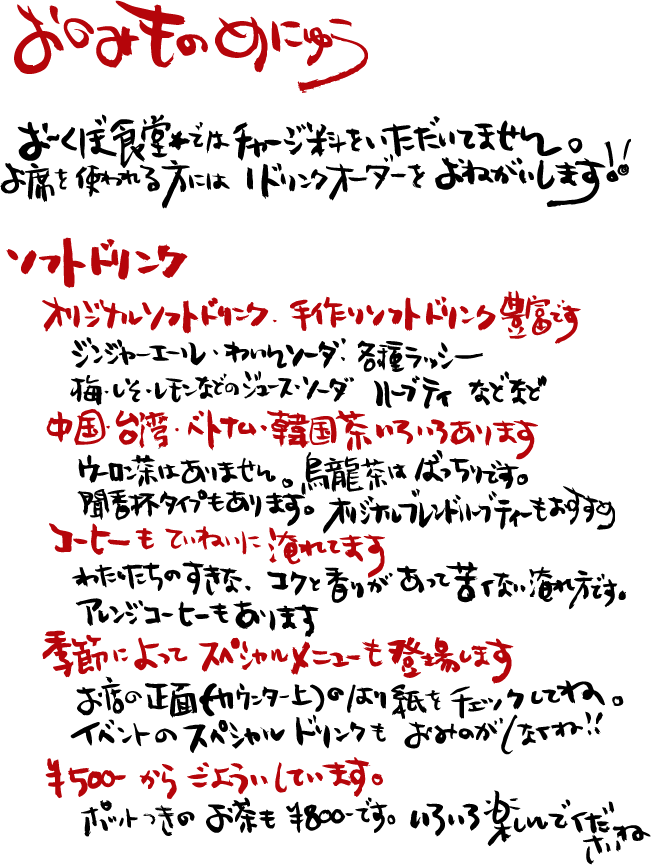 おのみものめにゅう
おーくぼ食堂*ではチャージ料をいただいてません。
お席を使われる方には1ドリンクオーダーをおねがいします!!
ソフトドリンク
オリジナルソフトドリンク、手作りソフトドリンク豊富です
ジンジャーエール・わいんソーダ、各種ラッシー
梅・しそ・レモンなどのジュース・ソーダ ハーブティ などなど
中国・台湾・ベトナム・韓国茶いろいろあります
ウーロン茶はありません。烏龍茶はばっちりです。
聞香杯タイプもあります。オリジナルブレンドハーブティーもおすすめ
コーヒーもていねいに淹れてます
わたしたちのすきな、コクと香りがあって苦くない淹れ方です。
アレンジコーヒーもあります
季節によってスペシャルメニューも登場します
お店の正面(カウンター上)のはり紙をチェックしてね。
イベントのスペシャルドリンクも おみのがしなくね!!
¥500-からごよういしています。
ポットつきのお茶も¥800-です。いろいろ楽しんでくださいね